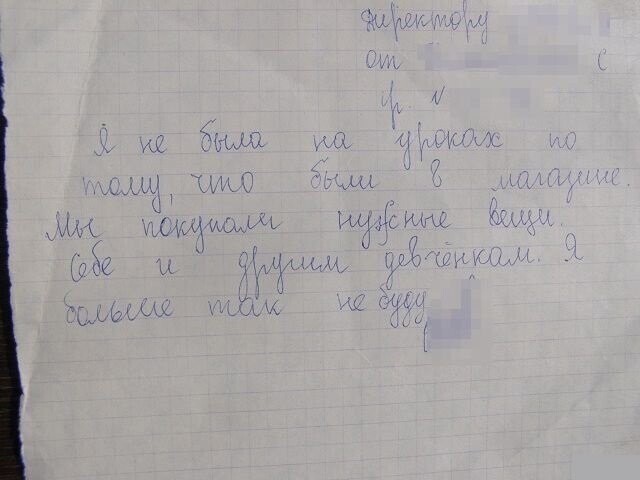 директору
от с
гр. №
Я не была на уроках по
тому, что были в магазине.
Мы покупали нужные вещи.
Себе и другим девчёнкам. Я
больше так не буду